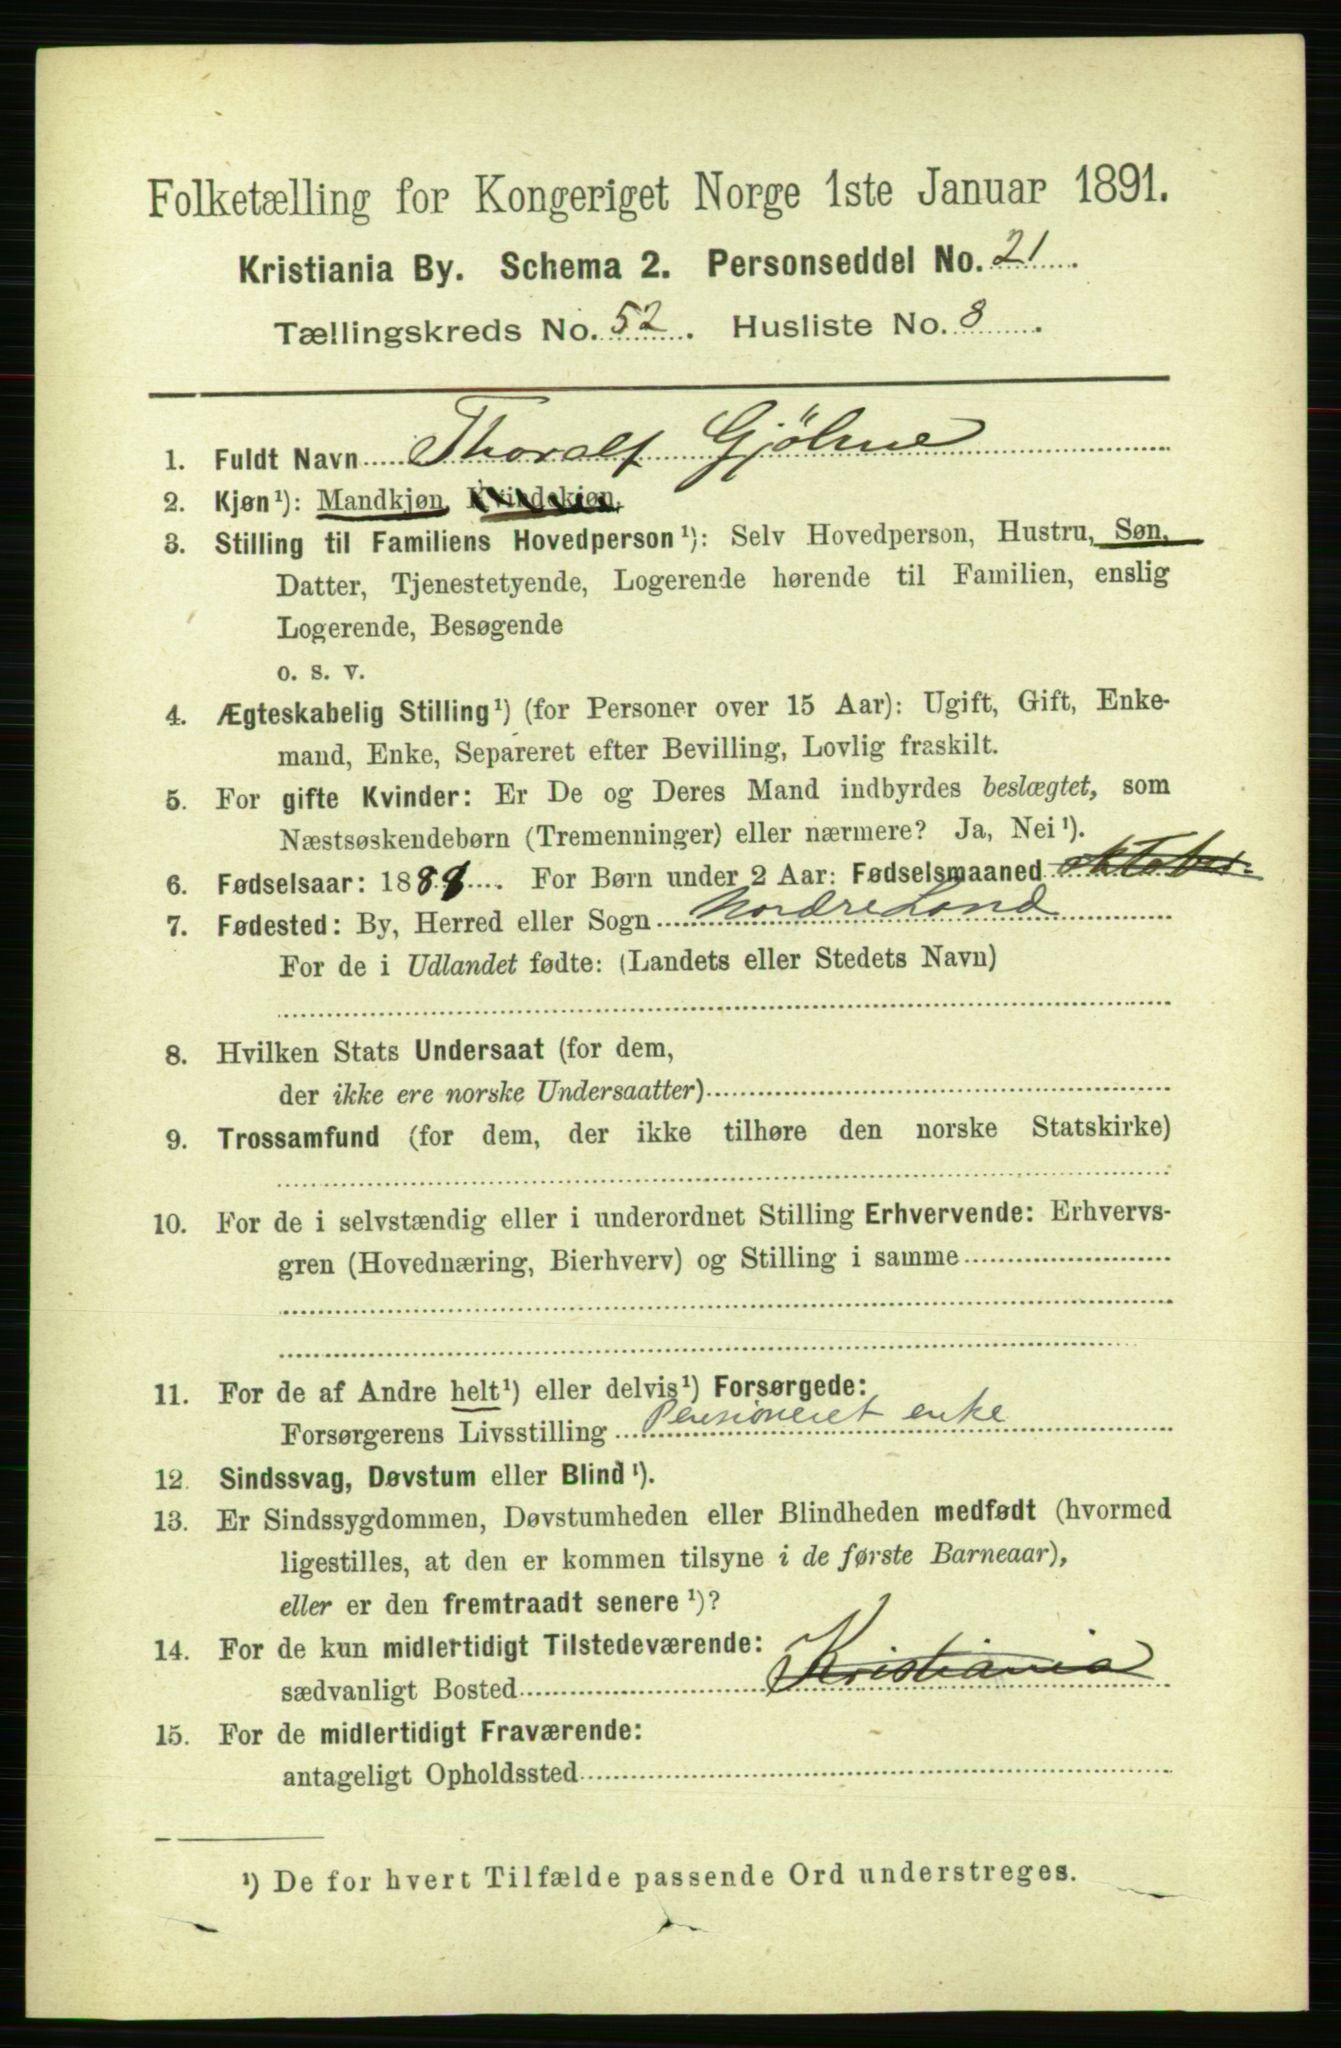 Folketælling for Kongeriget Norge 1ste Januar 1891.
Kristiania By. Schema 2. Personseddel No. 21.
Tællingskreds No. 52. Husliste No. 8.
1. Fuldt Navn Thoralf Gjölme
2. Kjøn¹): Mandkjøn, Kvindekjøn,
3. Stilling til Familiens Hovedperson¹): Selv Hovedperson, Hustru, Søn,
Datter, Tjenestetyende, Logerende hørende til Familien, enslig
Logerende, Besøgende
o. s. v.
4. Ægteskabelig Stilling¹) (for Personer over 15 Aar): Ugift, Gift, Enke-
mand, Enke, Separeret efter Bevilling, Lovlig fraskilt.
5. For gifte Kvinder: Er De og Deres Mand indbyrdes beslægtet, som
Næstsøskendebørn (Tremenninger) eller nærmere? Ja, Nei¹).
6. Fødselsaar: 1888. For Børn under 2 Aar: Fødselsmaaned oktober.
7. Fødested: By, Herred eller Sogn Nordre Land
For de i Udlandet fødte: (Landets eller Stedets Navn)
8. Hvilken Stats Undersaat (for dem,
der ikke ere norske Undersaatter)
9. Trossamfund (for dem, der ikke tilhøre den norske Statskirke)
10. For de i selvstændig eller i underordnet Stilling Erhvervende: Erhvervs-
gren (Hovednæring, Bierhverv) og Stilling i samme
11. For de af Andre helt¹) eller delvis¹) Forsørgede:
Forsørgerens Livsstilling Pensioneret enke
12. Sindssvag, Døvstum eller Blind¹).
13. Er Sindssygdommen, Døvstumheden eller Blindheden medfødt (hvormed
ligestilles, at den er kommen tilsyne i de første Barneaar),
eller er den fremtraadt senere¹)?
14. For de kun midlertidigt Tilstedeværende:
sædvanligt Bosted Kristiania
15. For de midlertidigt Fraværende:
antageligt Opholdssted
¹) De for hvert Tilfælde passende Ord understreges.